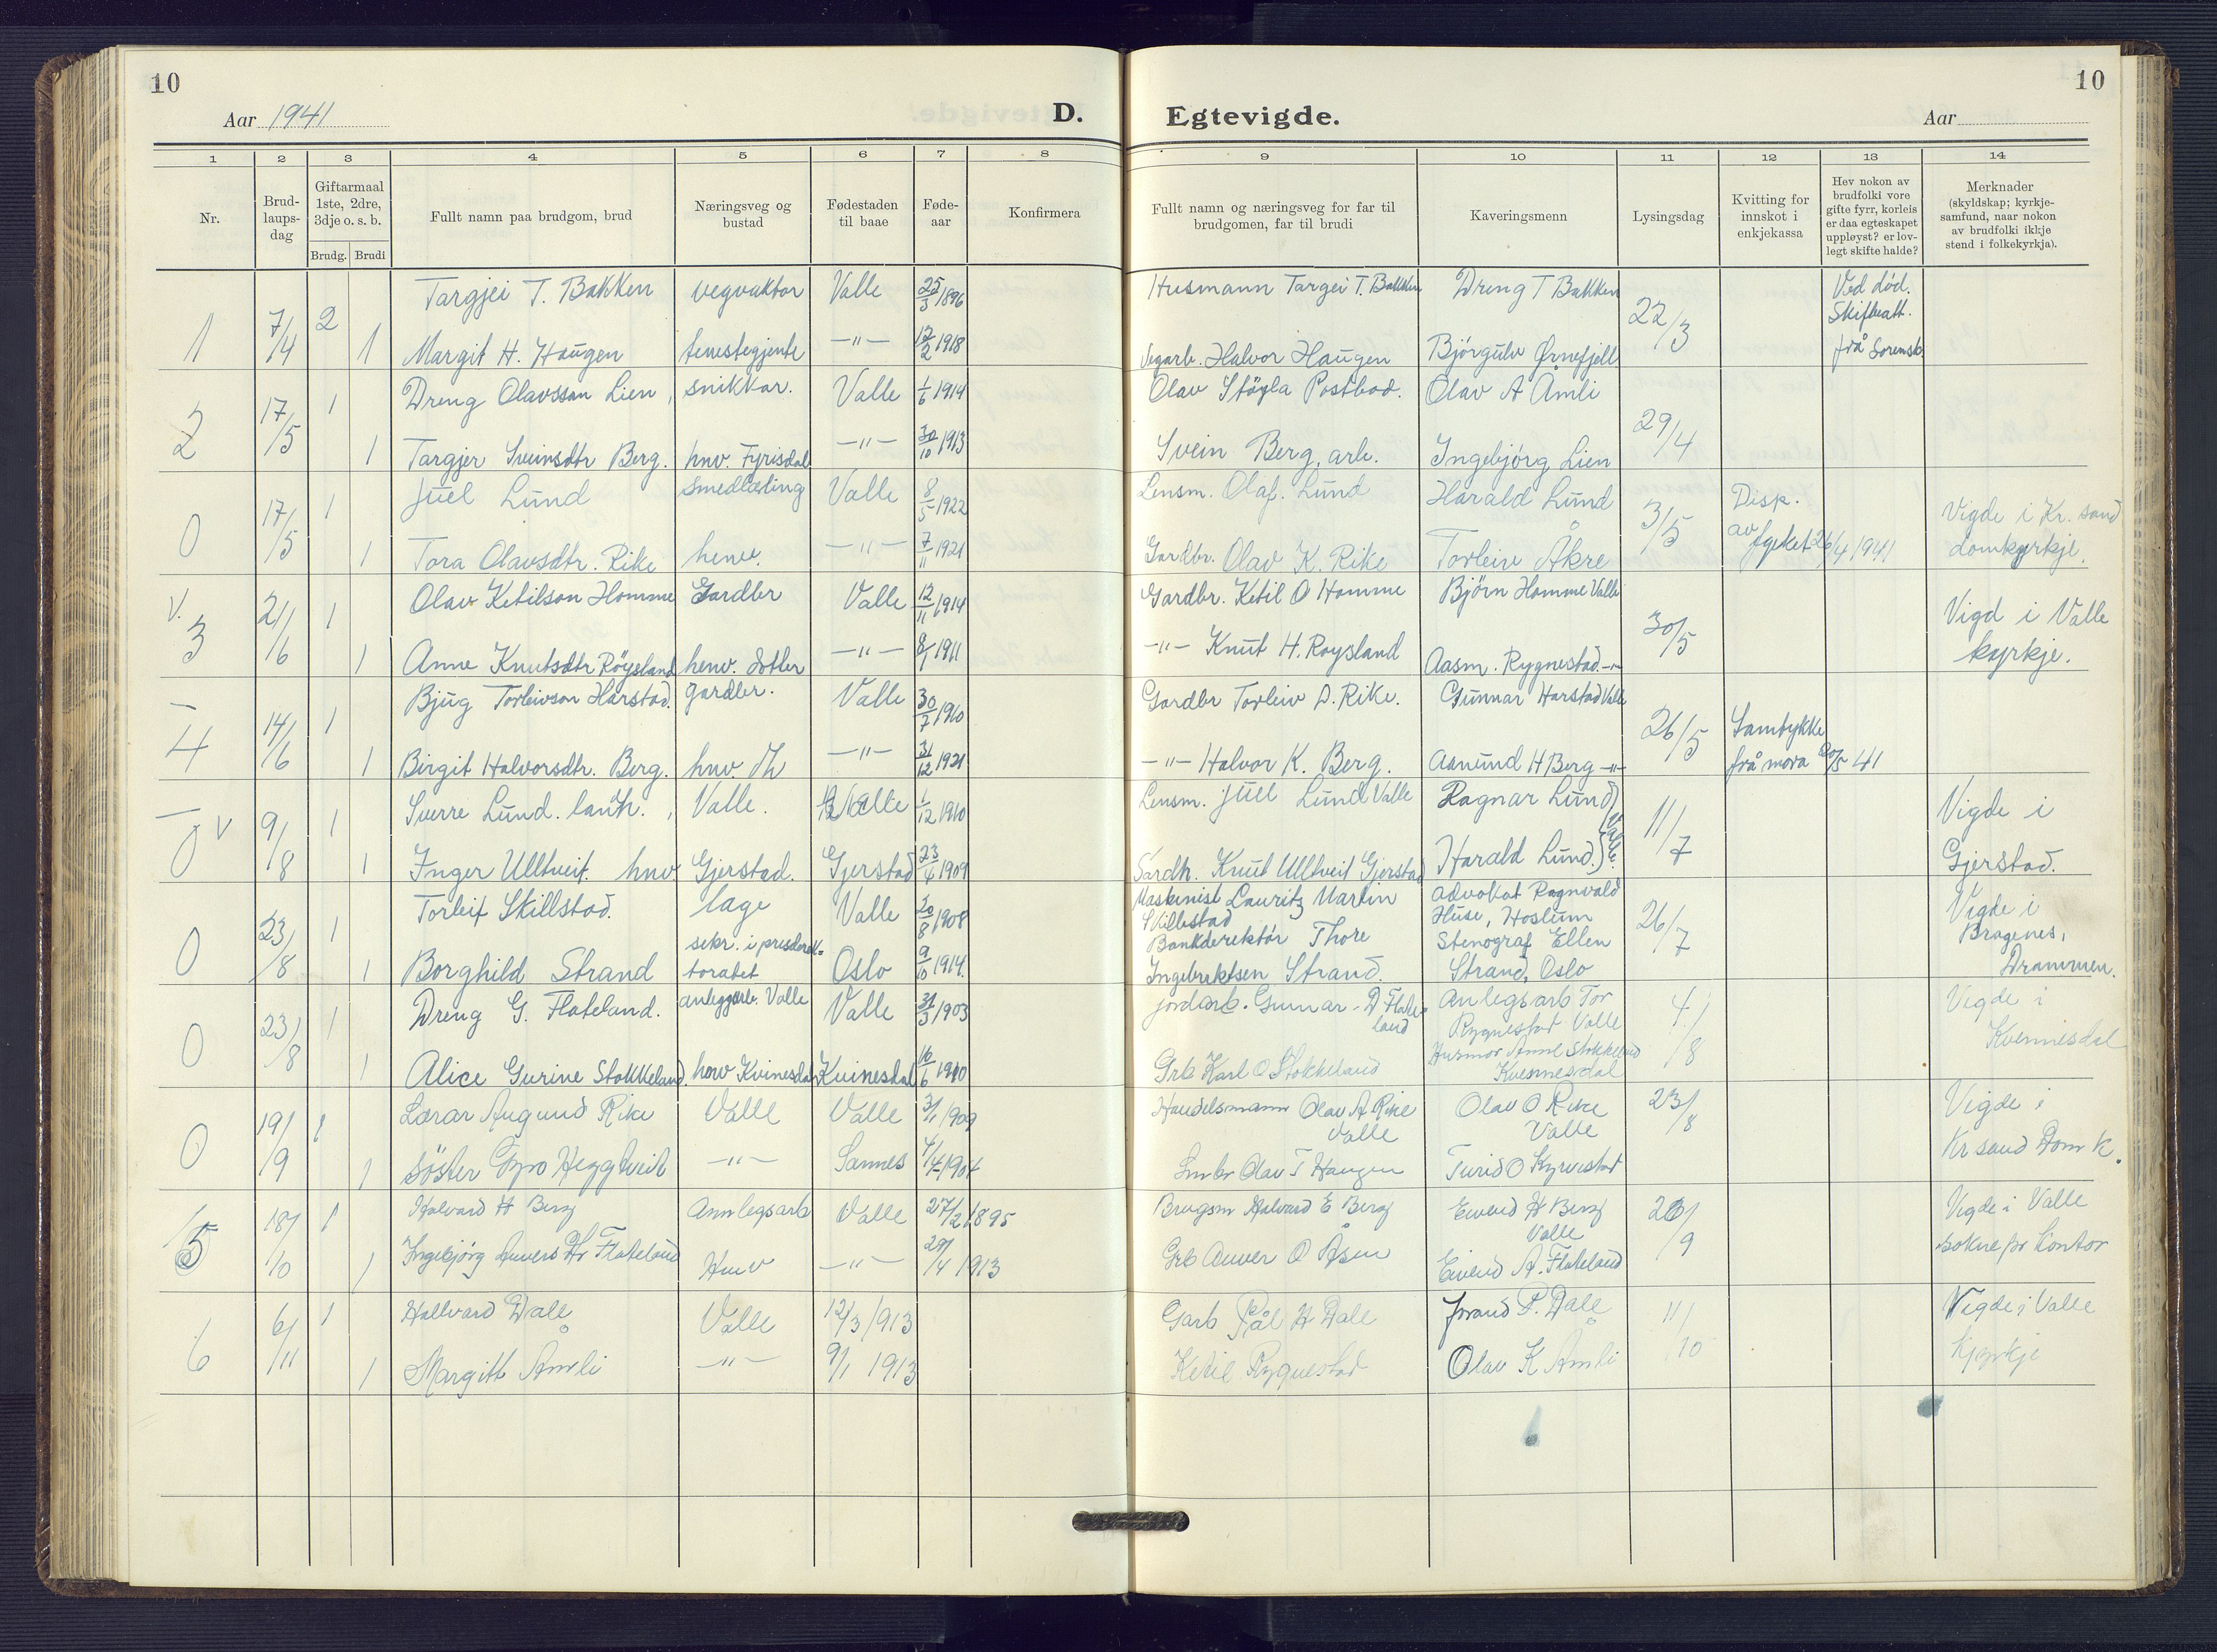 10
Aar 1941
D.
Egtevigde.
Aar
10
1 2 3 4 5 6 7 8 9 10 11 12 13 14
Nr.
Brud-
laups-
dag
Giftarmaal
1ste, 2dre,
3dje o. s. b.
Brudg. Brudi
Fullt namn paa brudgom, brud
Næringsveg og
bustad
Fødestaden
til baae
Føde-
aar
Konfirmera
Fullt namn og næringsveg for far til
brudgomen, far til brudi
Kaveringsmenn
Lysingsdag
Kvitting for
innskot i
enkjekassa
Hev nokon av
brudfolki vore
gifte fyrr, korleis
er daa egteskapet
uppløyst? er lov-
legt skifte halde?
Merknader
(skyldskap; kyrkje-
samfund, naar nokon
av brudfolki ikkje
stend i folkekyrkja).
1 7/4 2 Targjei T. Bakken vegvaktar Valle 25/3 1896 Husmann Targei T. Bakken Dreng T Bakken 22/3 Ved død. Skifteatt. frå Sorensk.
1 Margit H. Haugen tenestegjente -"- 12/2 1918 Vegarb. Halvor Haugen Bjørgulv Ørnefjell
2 17/5 1 Dreng Olavsson Lien, snikkar. Valle 1/6 1914 Olav Støyla Postbod. Olav A Åmli 29/4
1 Targjer Sveinsdtr Berg. hnv. Fyrisdal -"- 30/10 1913 Svein Berg, arb. Ingebjørg Lien
0 17/5 1 Juel Lund smedlæling Valle 8/5 1922 Lensm. Olaf. Lund Harald Lund 3/5 Disp. av fylket 26/4 1941 Vigde i Kr. sand domkyrkje.
1 Tora Olavsdtr. Rike henv. -"- 7/11 1921 Gardbr. Olav K. Rike Torleiv Åkre
V. 3 21/6 1 Olav Ketilson Homme Gardbr Valle 12/11 1914 Gardbr. Ketil O Homme Bjørn Homme Valle 30/5 Vigd i Valle kyrkje.
1 Anne Knutsdtr Røysland henv. dotter -"- 8/1 1911 -"- Knut H. Roysland Aasm. Rygnestad -"-
4 14/6 1 Bjug Torleivson Harstad. gardbr. Valle 30/7 1910 Gardbr Torleiv D. Rike. Gunnar Harstad Valle 26/5 Samtykke frå mora 20/5 41
1 Birgit Halvorsdtr. Berg. hnv. dtr -"- 31/12 1921 -"- Halvor K. Berg. Aanund H Berg -"-
0 V 9/8 1 Sverre Lund. lanh., Valle. Valle 1/12 1910 Lensm. Juel Lund Valle Ragnar Lund 11/7 Vigde i Gjerstad.
1 Inger Ulltveit. hnv. Gjerstad. Gjerstad 23/4 1909 Gardb. Knut Ulltveit Gjerstad Harald Lund. Valle.
0 23/8 1 Torleif Skillstad. lage Valle 20/8 1908 Maskinist Lauritz Martin Skillestad Advokat Ragnvald Huse, Hoslum 26/7 Vigde i Bragenes, Drammen.
1 Borghild Strand sekr. i prisdirek=toratet Oslo 9/10 1914. Bankdirektør Thore Ingebrektsen Strand. Stenograf Ellen Strand, Oslo
0 23/8 1 Dreng G. Flateland. anleggarb. Valle Valle 31/3 1903 jordarb. Gunnar D Flate=land Anlegsarb Tor Rygnestad Valle 4/8 Vigde i Kvennesdal
1 Alice Gurine Stokkeland. henv Kvinesdal Kvinesdal 16/6 1910 Grb Karl O Stokkeland Husmor Anne Stokkeland Kvennesdal
0 19/9 1 Lærar Augund Rike Valle Valle 3/11 1909 Handelsmann Olav A Rike Valle Olav O Rike Valle 23/8 Vigde i Kr sand Dom k.
1 Søster Gyro Heggtveit -"- Sannes 4/4 1904 Smbr Olav T Haugen Turid O Kyrvestad
5 18/10 1 Halvard H Berg Annlegsarb Valle 27/2 1895 Brugsm Halvard E Berg Eivend H Berg Valle 20/9 Vigde i Valle sokneprkontor
1 Ingebjørg Anversdtr Flateland Husv -"- 29/4 1913 Grb Anver O Åsen Eivend A. Flateland
6 6/11 1 Hallvard Dale Valle 12/3 1913 Garb Pål H Dale Jorand P. Dale 11/10 Vigde i Valle Kjyrkje
1 Margitt Åmli -"- 9/1 1913 Ketil Rygnestad Olav K Åmli